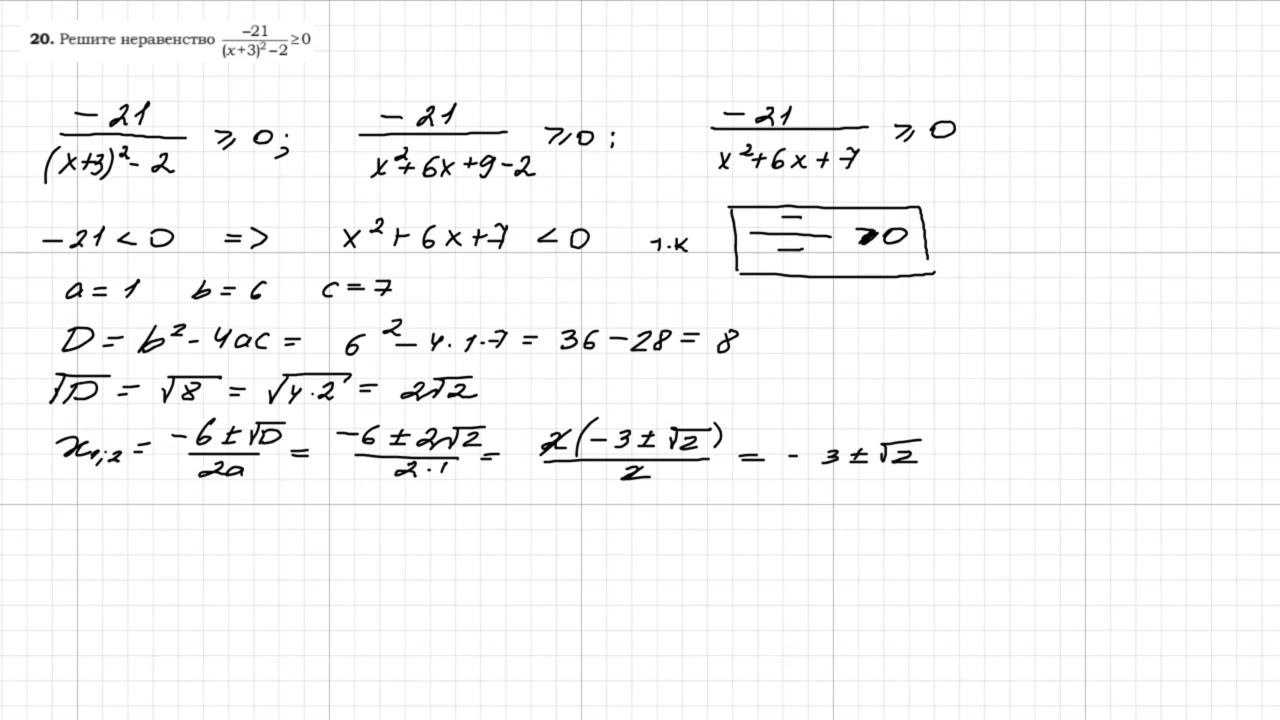 20. Решите неравенство -21/((x+3)²-2) ≥ 0
-21/((x+3)²-2) ≥ 0; -21/(x²+6x+9-2) ≥ 0; -21/(x²+6x+7) ≥ 0
-21 < 0 => x²+6x+7 < 0 т.к -/- > 0
a = 1 b = 6 c = 7
D = b² - 4ac = 6² - 4·1·7 = 36 - 28 = 8
√D = √8 = √(4·2) = 2√2
x₁;₂ = (-6 ± √D)/(2a) = (-6 ± 2√2)/(2·1) = 2(-3 ± √2)/2 = -3 ± √2